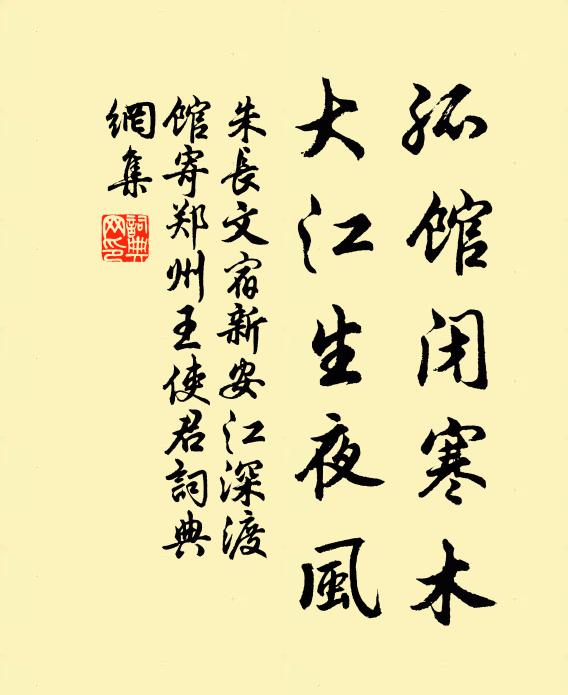 孤馆闭寒木
大江生夜風
朱長文宿新安江深渡
馆寄郑州王使君詞典
網集
詞典
网印